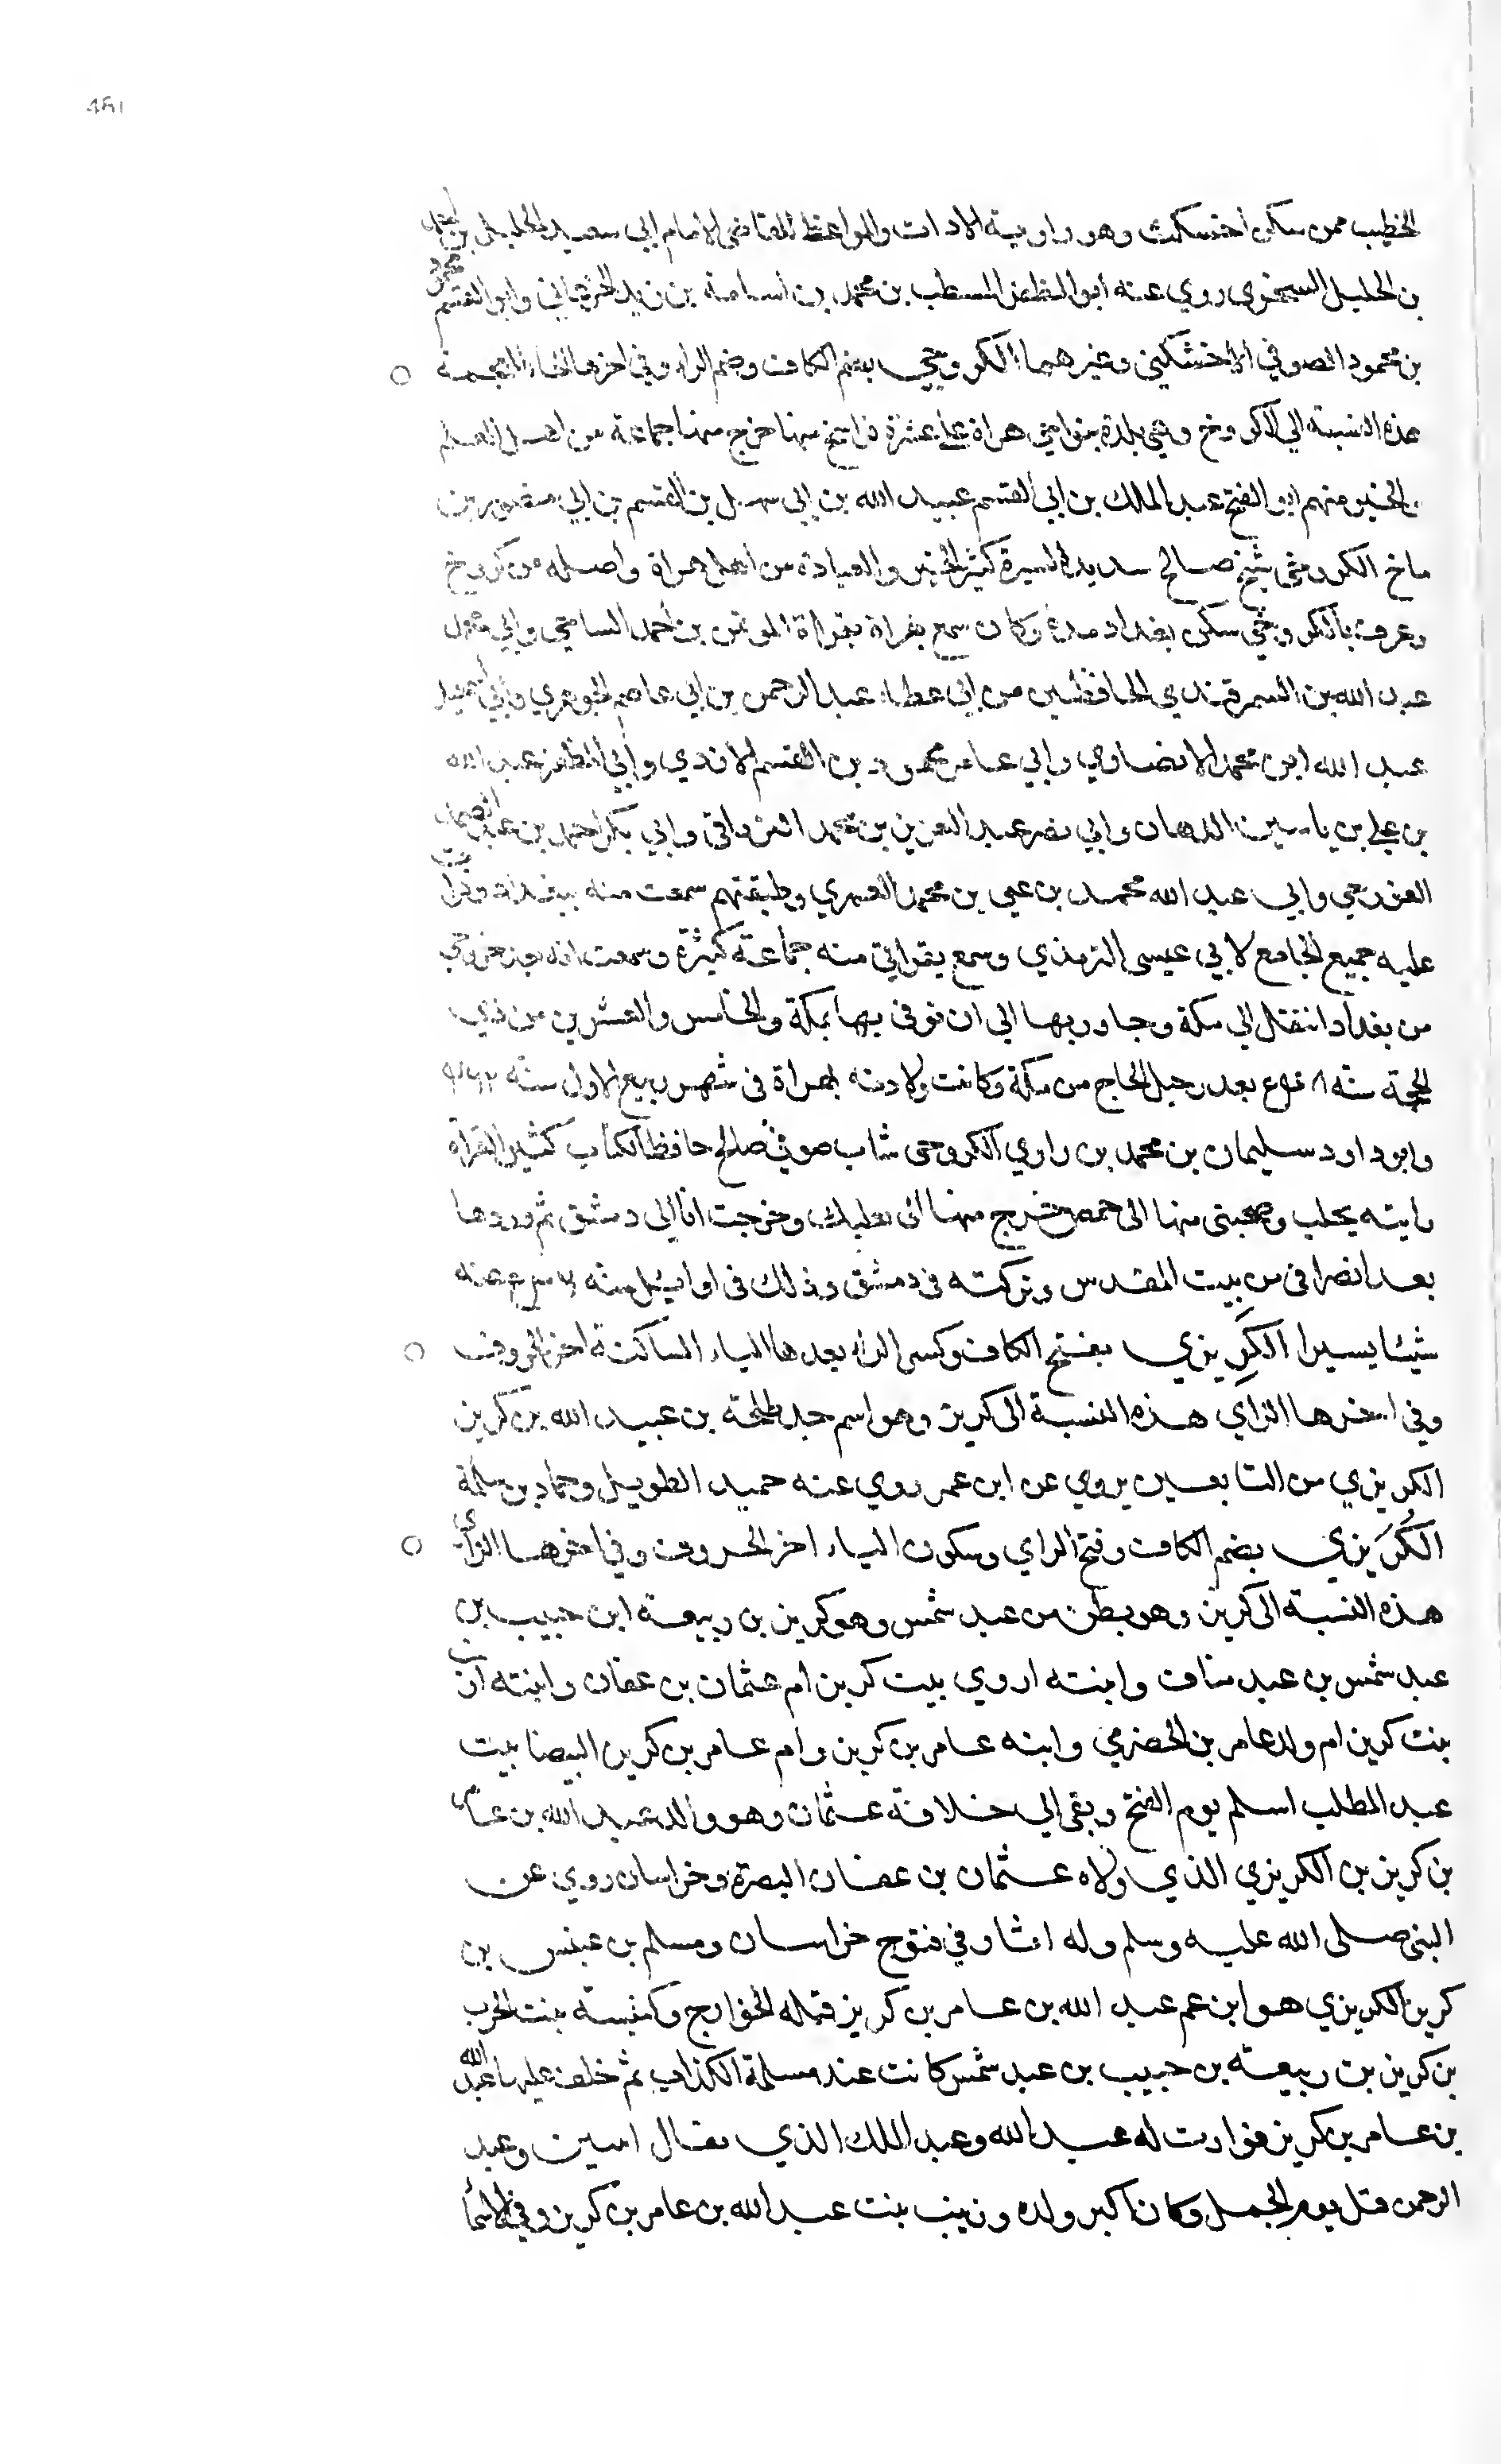 481
الخطيب ممن سكن اخسيكث وهو راوية الادات والمواعظ للقاضي الامام ابي سعيد الخليل بن احمد
بن الخليل السجزي روي عنه ابو المظفر المسطب بن محمد بن اسامة بن زيد الفرغاني وابو القسم محمود
بن محمود الصوفي الاخشكيثي وغيرهما الكروخي بفتح الكاف وضم الراء وفي اخرها الخاء المعجمة
هذه النسبة الي الكروخ وهي بلدة بنواحي هراة علي عشرة فراسخ منها خرج منها جماعة من اهل العلم
والخير منهم ابو الفتح عبد الملك بن ابي القسم عبيد الله بن ابي سهل بن القسم بن ابي منصور بن
ماخ الكروخي شيخ صالح سديد السيرة كثير الخير والعبادة من اهل هراة واصله من كروخ
وعرف بالكروخي سكن بغداد مدة وكان سمع بهراة بقراة الموتمن بن احمد الساجي وابي محمد
عبد الله بن السمرقندي الحافظين من ابي عطاء عبد الرحمن بن ابي عاصم الجوهري وابي اسمعيل
عبد الله ابن محمد الانصاري وابي عامر محمود بن القسم الازدي وابي المظفر عبيد الله
بن علي بن ياسين الدهان وابي نصر عبد العزيز بن محمد الترياقي وابي بكر احمد بن عبد الصمد
الغورجي وابي عبد الله محمد بن علي بن محمد العميري وطبقتهم سمعت منه ببغداد وقرات
عليه جميع الجامع لابي عيسى الترمذي وسمع بقراتي منه جماعة كثيرة وسمعت انه بعد خروجي
من بغداد انتقل الي مكة وجاور بها الى ان توفى بها بمكة والخامس والعشرين من ذي
الحجة سنة بعد رحيل الحاج من مكة وكانت ولادته بهراة فى شهر ربيع الاول سنة
وابو داود سليمان بن محمد بن راوي الكروحى شاب صوفي صالح حافظ الكتاب كثير القراة
رايته بحلب وصحبنى منها الى حمص خرج منها الى بعلبك وخرجت انا الى دمشق ثم وردها
بعد انصرافى من بيت المقدس وتركته فى دمشق وذلك فى اوايل سنة عنه
شيئا يسيرا الكَرِيزي بفتح الكاف وكسر الراء بعدها الياء الساكنة اخر الحروف
وفي اخرها الزاي هذه النسبة الى كريز وهو اسم جد طلحة بن عبيد الله بن كريز
الكريزي من التابعين يروي عن ابن عمر روي عنه حميد الطويل وحماد بن سلمة
الكُرَيزي بضم الكاف وفتح الراي وسكون الياء اخر الحروف وفي اخرها الزاي
هذه النسبة الى كريز وهو بطن من عبد شمس وهو كريز بن ربيعة ابن حبيب بن
عبد شمس بن عبد مناف وابنته اروي بيت كريز ام عثمان بن عفان وابنته
بنت كريز ام ولد عامر بن الحضرمي وابنه عامر بن كريز وام عامر بن كريز البيضا بيت
عبد المطلب اسلم يوم الفتح وبقى الي خلافة عثمان وهو والد عبد الله بن عامر
بن كريز بن الكريزي الذي ولاه عثمان بن عفان البصرة وخراسان روي عن
النبي صلى الله عليه وسلم وله اثار في فتوح خراسان ومسلم بن عبنس بن
كريز الكريزي هو ابن عم عبد الله بن عامر بن كريز قتله الخوارج وكيسة بنت الحرب
بن كريز بن ربيعة بن حبيب بن عبد شمس كانت عند مسلمة الكذاب ثم خلف عليها عبد الله
بن عامر بن كريز فولدت له عبد الله وعبد الملك الذي يقال امين وعبد
الرحمن قتل يوم الجمل وكان اكبر ولده وزينب بنت عبد الله بن عامر بن كريز وفي الاسما